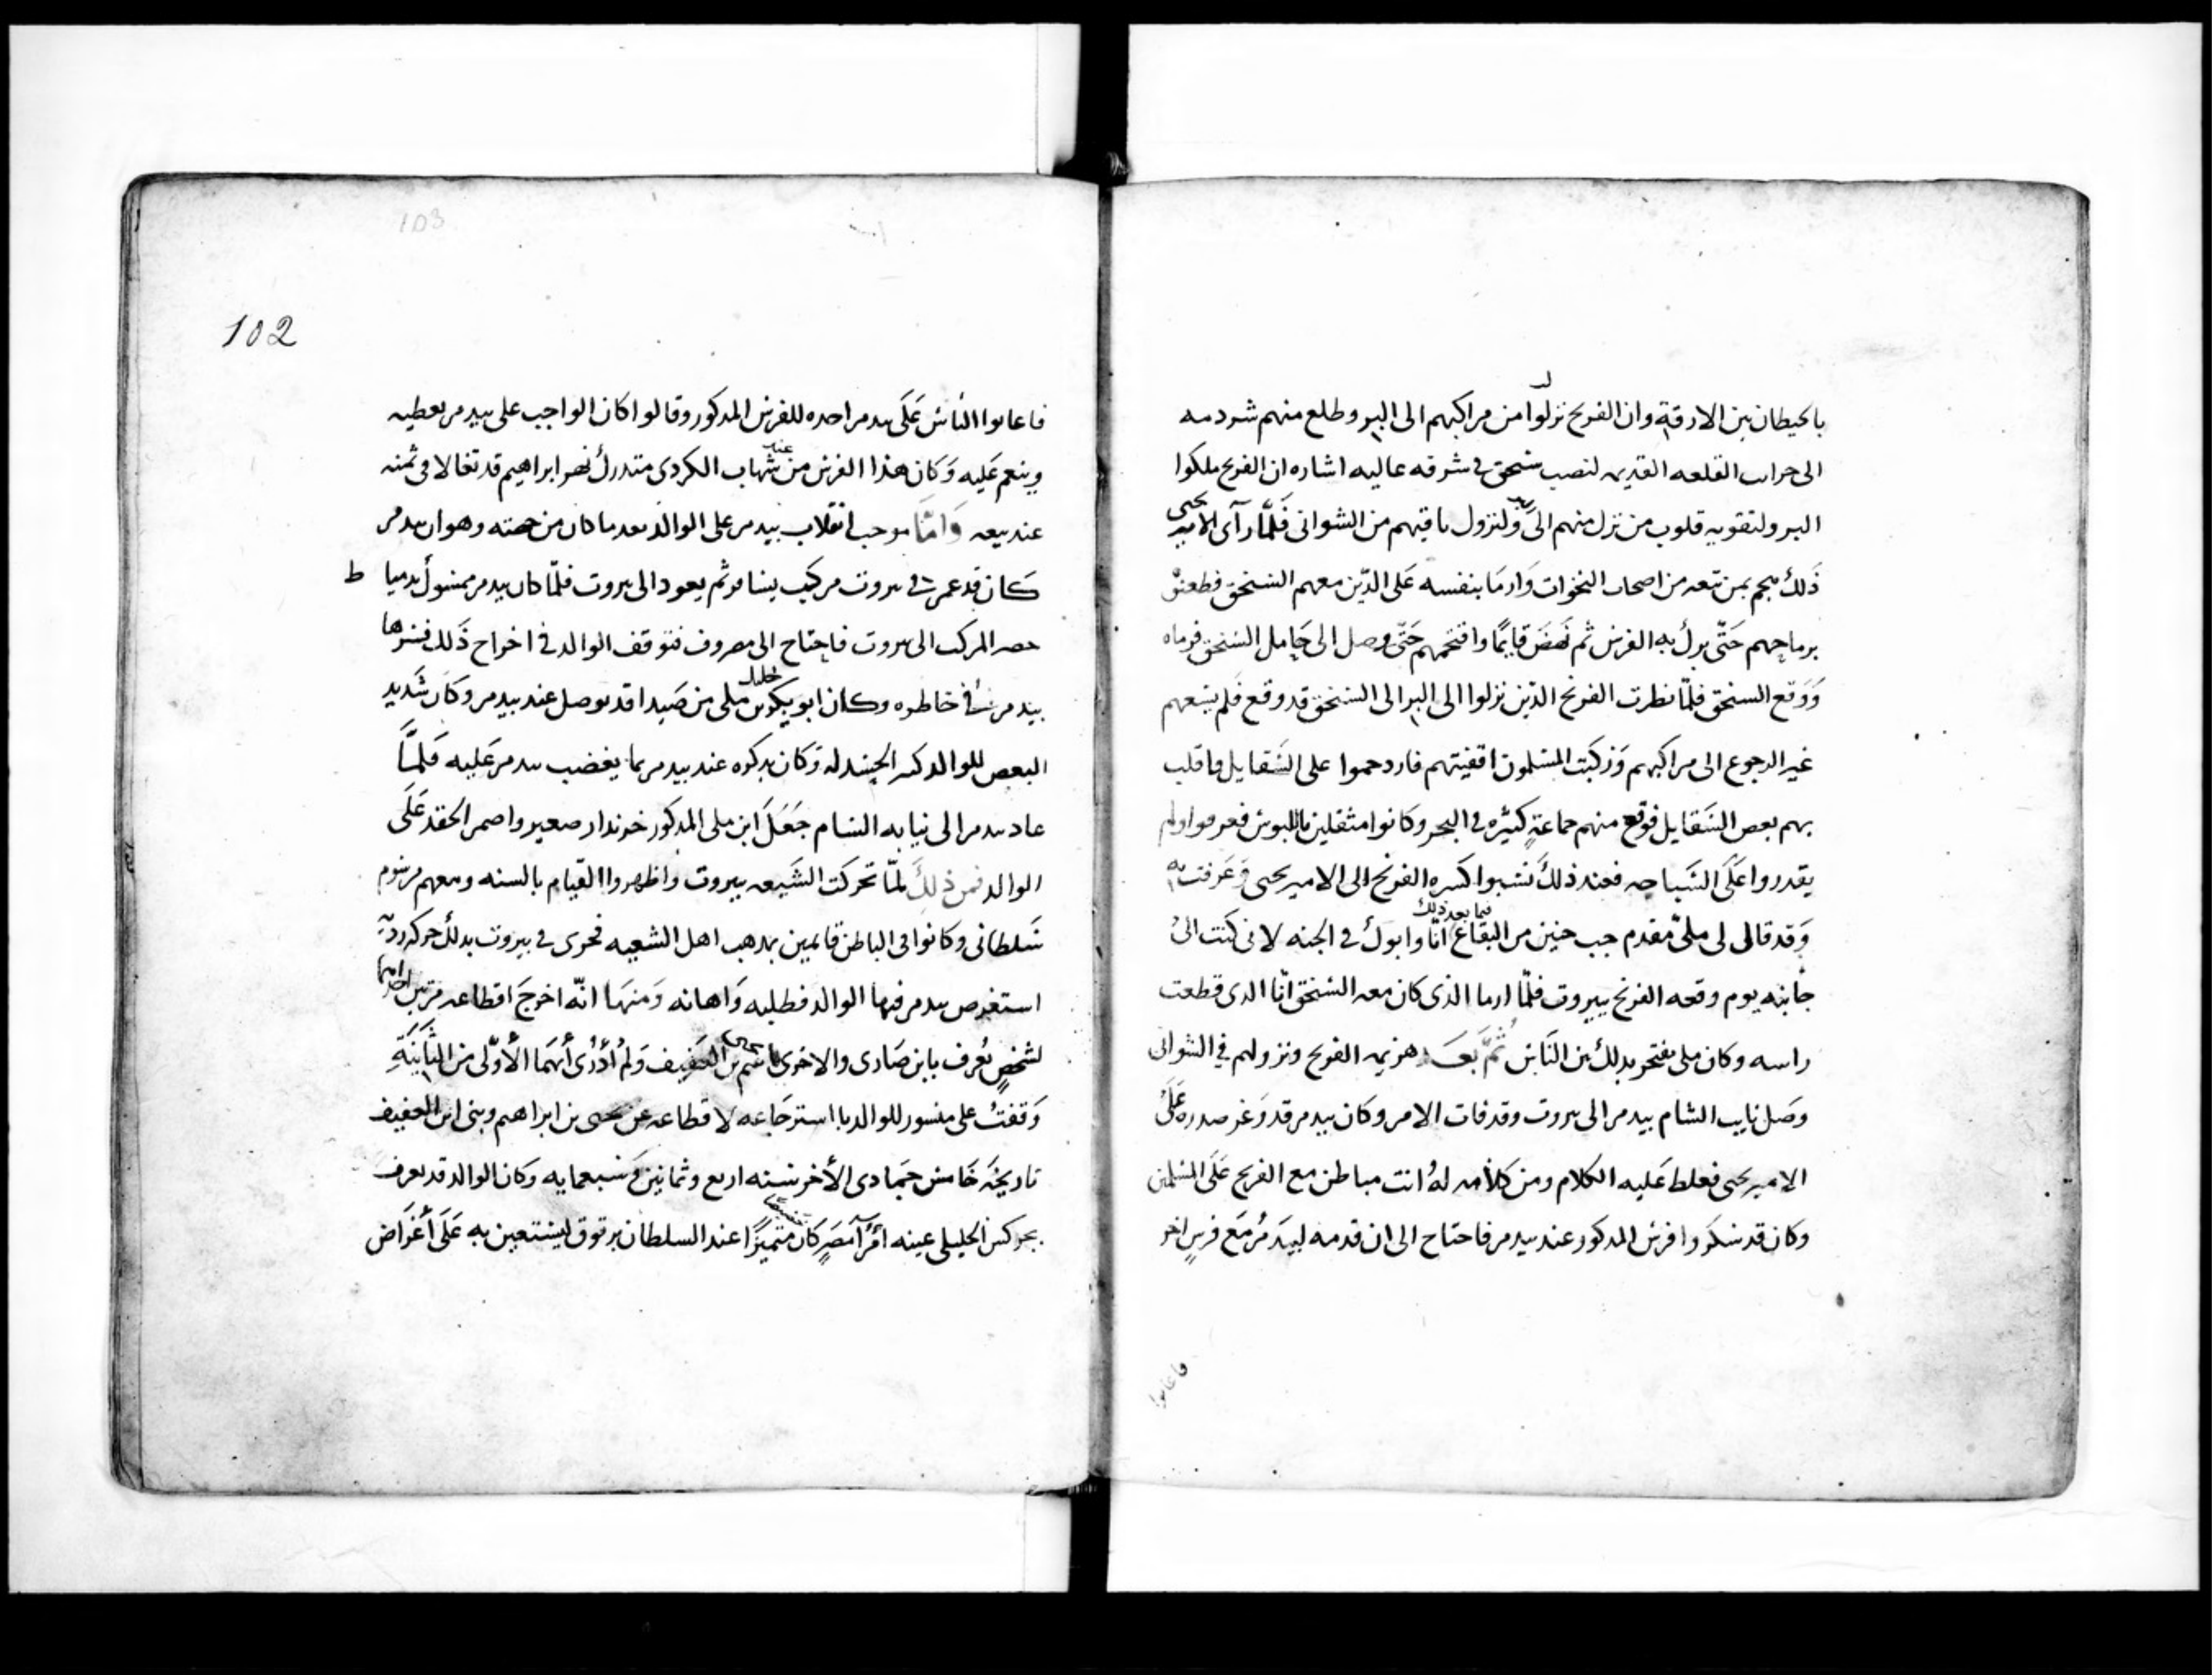 بالحيطان بين الازقة وان الفرنج نزلوا من مراكبهم الى البر وطلع منهم شردمه
الى خراب القلعه القديمه لنصب سنجق في شرفه عاليه اشاره ان الفرنج ملكوا
البر ولتقويه قلوب من نزل منهم الى البر ولنزول باقيهم من الشواني فَلَمّا رآى الامير يحيى
ذَلك هجم بمن معه من اصحاب النخوات وَارمَا بنفسه عَلى الذّين معهم السنجق فطعنوْ
برماحهم حَتّى برك به الفرس ثم نَهَضَ قايمًا واقتحمهم حَتّى وصل الى حَامل السنجق فرماه
وَوَقع السنجق فلمّا نظرت الفرنج الذين نزلوا الى البر الى السنجق قد وقع فَلم يسَعهم
غير الرجوع الى مراكبهم وَركبَت المسلمون اقفيتهم فازدحموا على السَقايل فاقلب
بهم بعض السَقايل فوقع منهم جماعةٍ كثيره في البحر وكانوا مثقلين باللبوس فغرقوا ولم
يقدروا عَلَى السَباحه فعند ذلكَ نسَبوا كسره الفرنج الى الامير يحيى وَعَرفت به
وَقد قالى لى ملىّ مُقدم جب جنين من البقاع فيما بعد ذلك انّا وابوك في الجنه لانى كنت الى
جانبه يوم وقعه الفرنج ببيروت فلمّا ارما الذى كان معه السنجق انّا الدى قطعت
راسه وكان ملى يفتخر بدلك بين النَاس ثُمَّ بعَد هزيمه الفرنج ونزولهم في الشوانى
وصَل نايب الشام بيدمر الى بيروت وقد فات الامر وكان بيدمر قد وَغر صدره عَلَى
الامير يحيى فغلط عَليه الكلام ومن كلامه لهُ انت مباطن مع الفرنج عَلَى المسلمين
وكان قد شكَروا فرس المدكور عند بيدمر فاحتاج الى ان قدمه لبيدَمُر مَع فرسٍ اخر
فاعابوا
102
103
فاعابوا النَاسْ عَلَى بيدمر اخده للفرس المدكور وقالوا كان الواجب على بيدمر يعطيه
وينعم عَليه وَكان هَذا الفرس من عند شهاب الكردى متدرك نهر ابراهيم قد تغالا فى ثمنه
عند بيعه وَامّا موجب انقلاب بيدمر على الوالد بعد ما كان من جهته وهو ان بيدمر
كَان قد عمر في بيروت مركب يسافر ثم يعود الى بيروت فلمّا كان بيدمر ممسُول بدميا ط
حضر المركب الى بيروت فاحتاج الى مصروف فتوقف الوالد في اخراج ذَلك فسرها
بيدمر في خاطره وكان ابو بكر بن خليل ملى من صَيدا قد توصل عند بيدمر وكان شَديد
البغض للوالد كثير الحسد له وَكان يدكره عند بيدمر بما يغضب بيدمر عَليه فَلمَّا
عاد بيدمر الى نيابه الشام جَعَلَ ابن ملى المدكور خزندار صغير واضمر الحقد عَلَى
الوالد فمن ذلك لمّا تحركت الشَيعه ببيروت واظهروا القيام بالسنه ومعهم مرسُوم
سَلطانى وكانوا فى الباطن قايمين بمدهب اهل الشعيه فجرى في بيروت بدلك حركه رديّه
استغرض بيدمر فيها الوالد فطلبه وَاهانه وَمنهَا انّه اخرجَ اقطاعه مرتين احداهما
لشخصٍ يُعرف بابن صَارى والاخرى باسم بن العفيف وَلمْ أدْرى أيهمَا الأوّلى من الثَانيَةِ
وَقفتُ على منشور للوالد باسترجَاعه لاقطاعه عن يحيى بن ابراهيم وبنى ابن العفيف
تاريخَه خَامس جَمادى الأخر سَنه اربع وثمانين وَسَبعمايه وكان الوالد قد تعرف
بجركس الخليلى عينه امَرآ مصَرٍ كان متميزًا عند السلطان برقوق ليَستعين به عَلَى أغرَاض